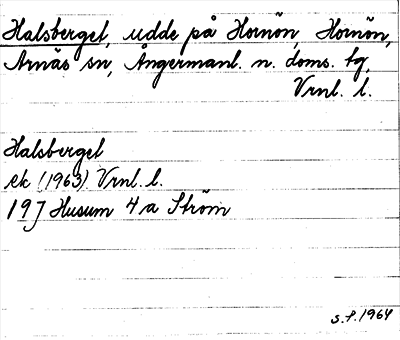 Halsberget, udde på Hornön, Hornön,
Arnäs sn, Ångermanl. n. doms. tg,
Vrnl. l.
Halsberget
ek (1963) Vrnl. l.
19J Husum 4a Ström
S.P. 1964